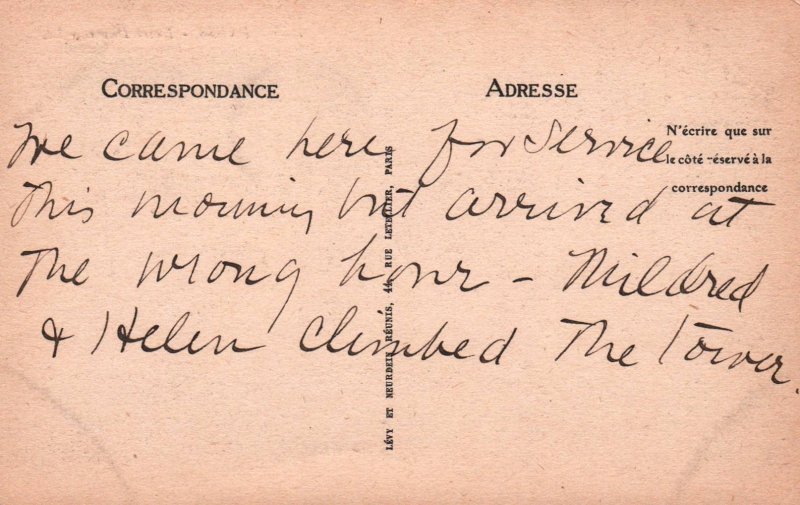 CORRESPONDANCE
ADRESSE
N'écrire que sur
le côté réservé à la
correspondance
We came here for service
this morning but arrived at
the wrong hour – Mildred
& Helen climbed the tower.
LÉVY ET NEURDEIN RÉUNIS, 44, RUE LETELLIER, PARIS